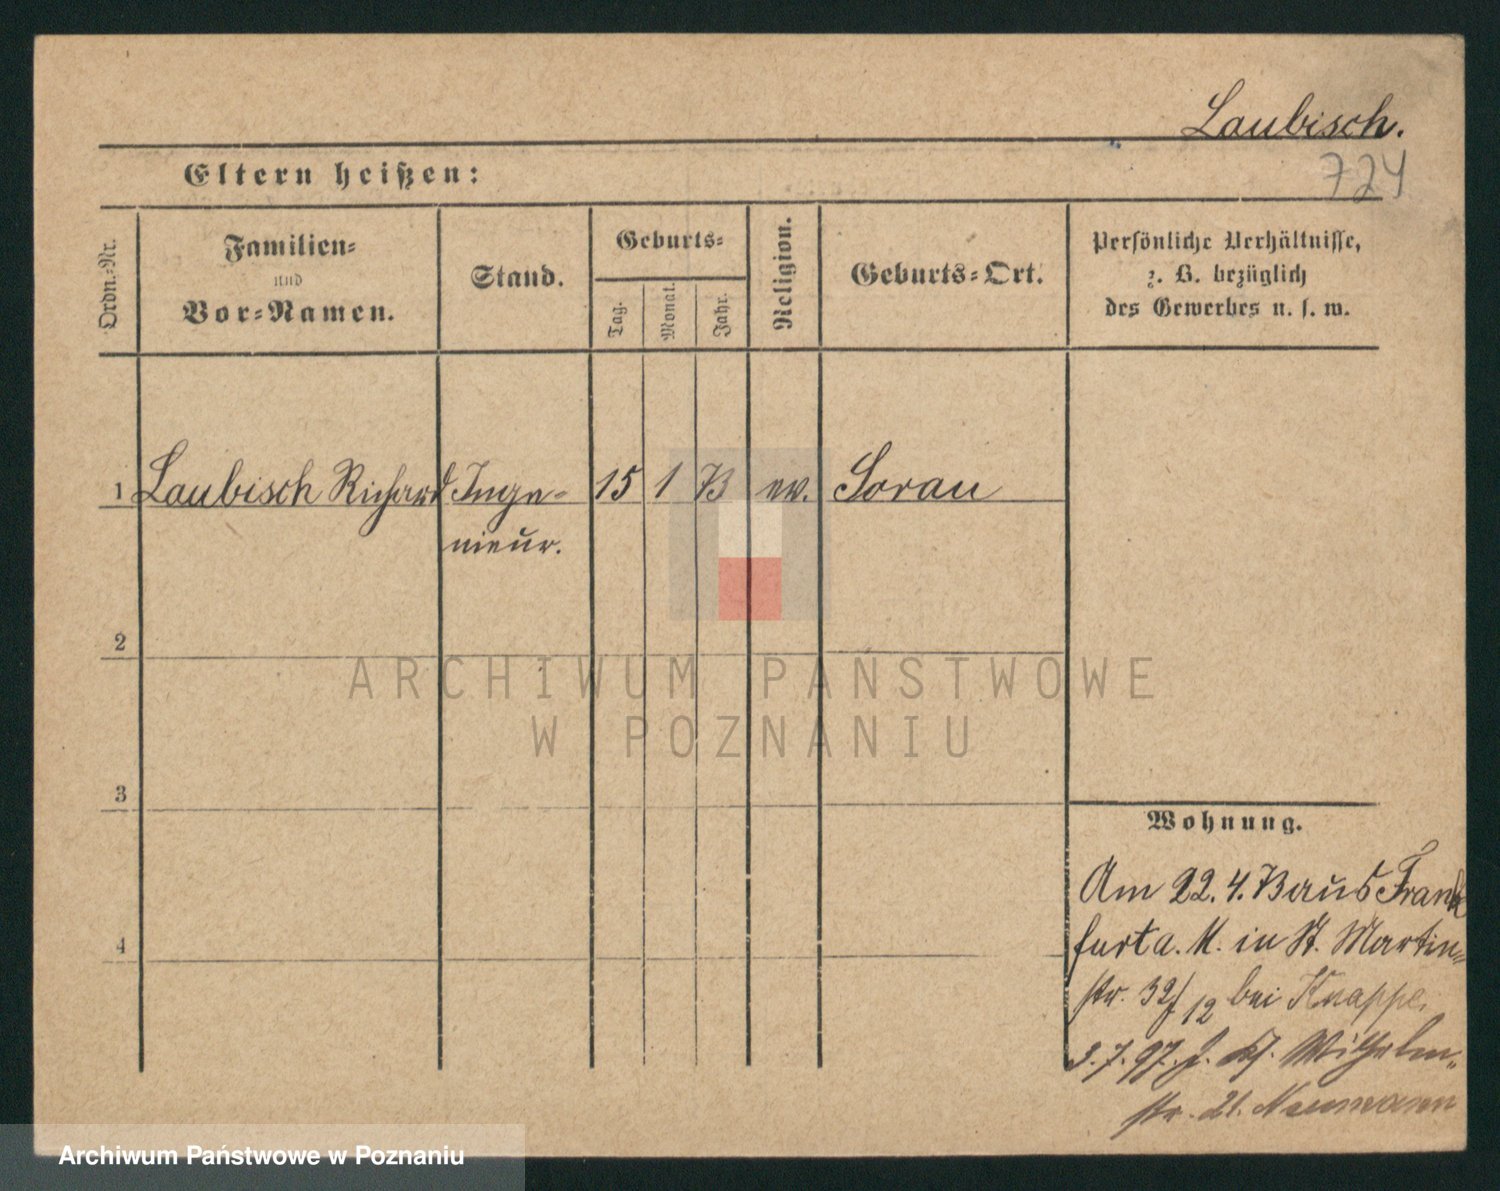 Laubisch.
724
Eltern heißen:
Ordn.-Nr.
Familien-
und
Vor-Namen.
Stand.
Geburts-
Tag.
Monat.
Jahr.
Religion.
Geburts-Ort.
Persönliche Verhältnisse,
z. B. bezüglich
des Gewerbes u. s. w.
1 Laubisch Richard Inge- 15 1 73 ev. Sorau
nieur.
2
3
4
Wohnung.
Am 22.4. aus Frank
furt a. M. in St. Martin-
str. 32/12 bei Knappe.
3.7.97. Wilhelm-
str. 21. Neumann
ARCHIWUM PAŃSTWOWE
W POZNANIU
Archiwum Państwowe w Poznaniu